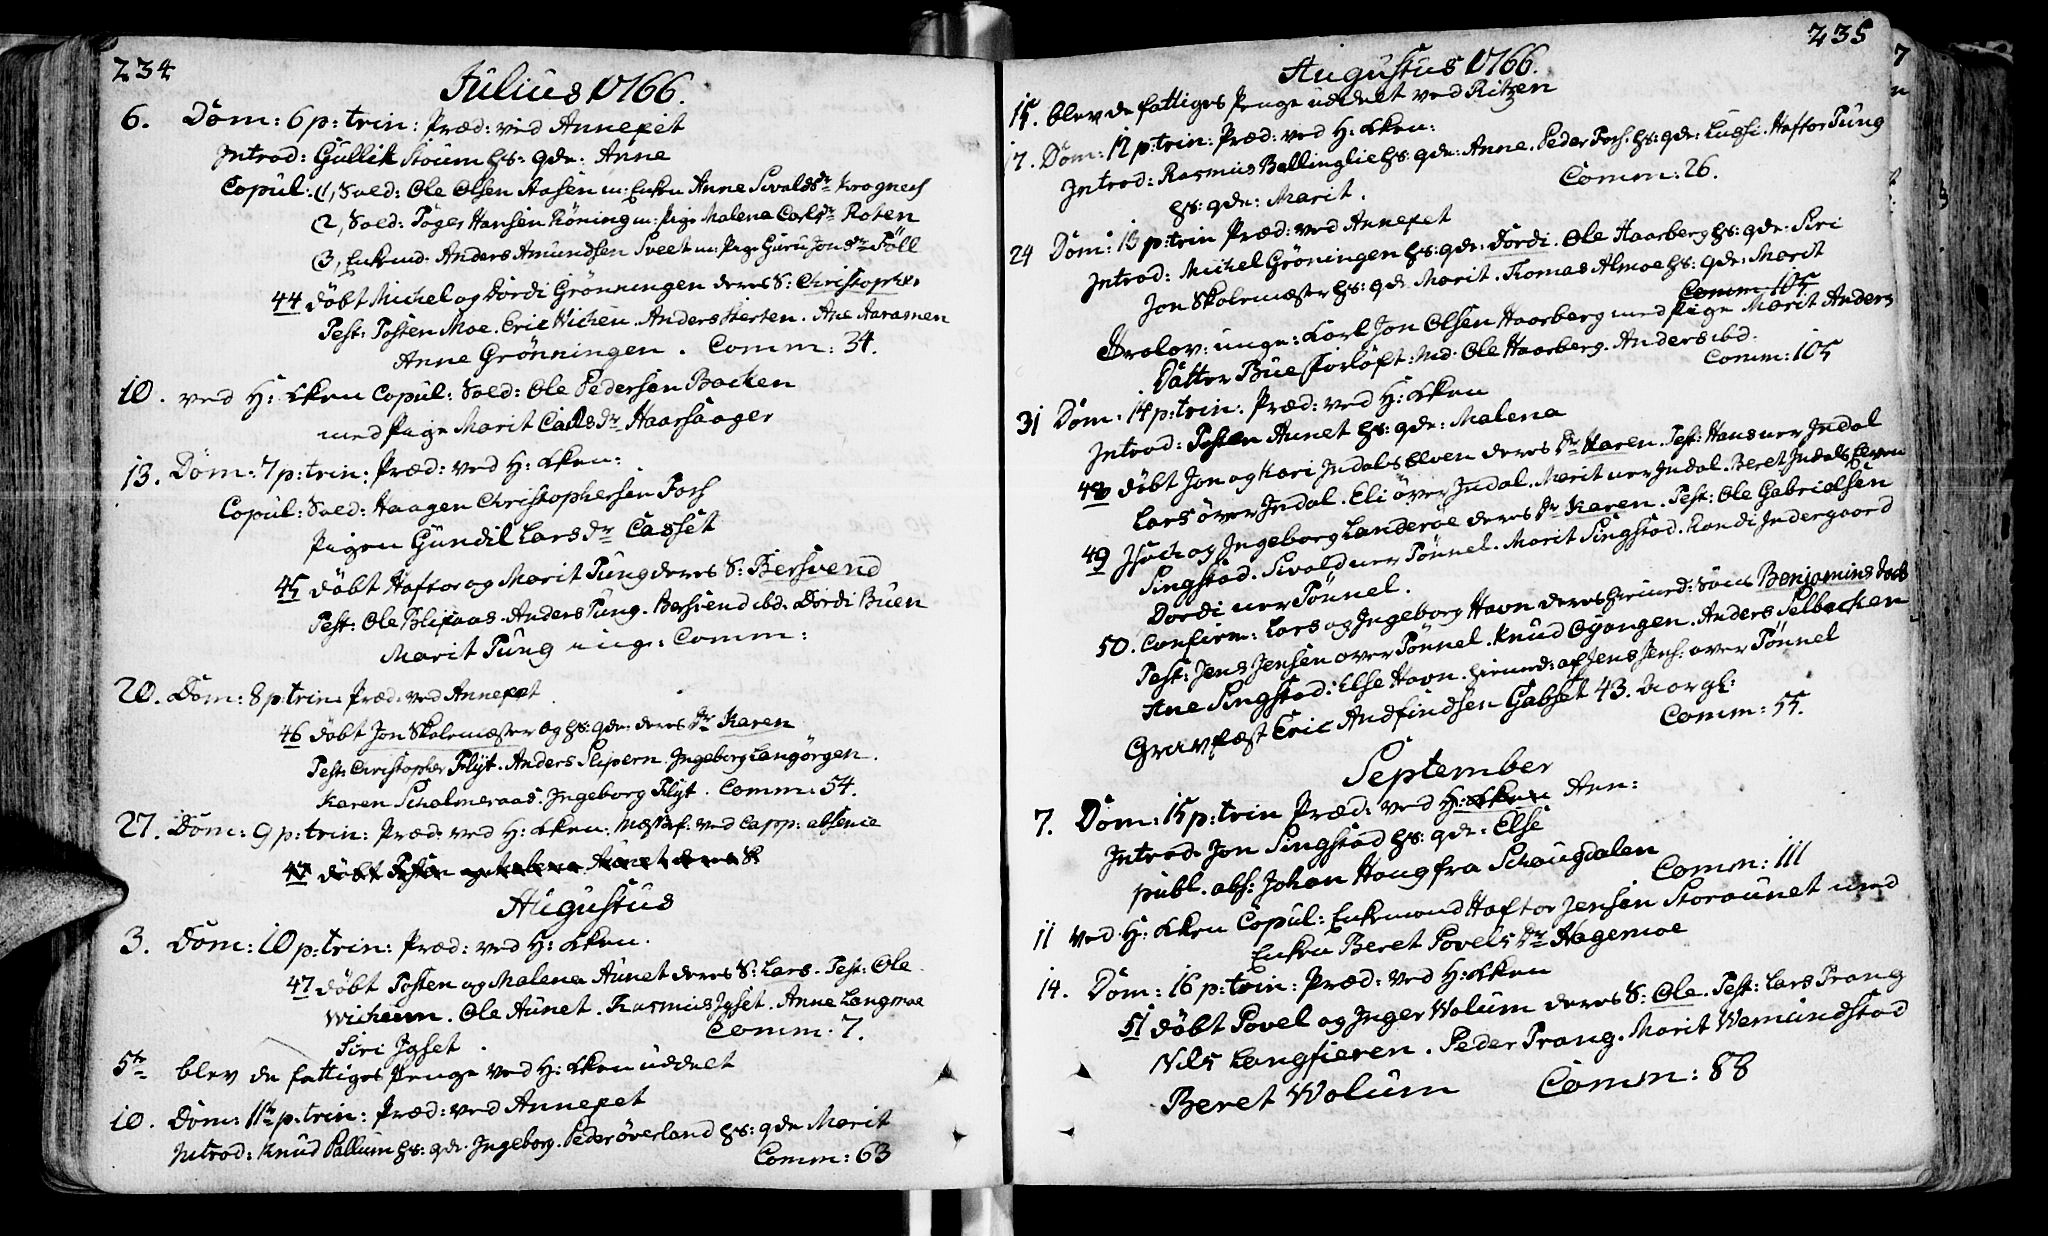 234
Julius 1766.
6. Dom: 6 p: trin: Præd: ved Annexet
Introd: Gullik Stoum hs: qde: Anne
Copul: (1, Sold: Ole Olsen Aasen m: Enken Anne Sivaldsdr Krognes
(2, Sold: Töger Hansen Röning m: Pige Malena Carlsdr Roten
(3, Enkemd: Anders Amundsen Sveet m: Pige Guru Jonsdr Föll
44 döbt Michel og Dordi Grönningen deres S: Christopher
Test: Tosten Moe. Eric Wichen. Anders Sterten. Ane Aaramen
Anne Grönningen. Comm: 34.
10. ved H: Lken Copul: Sold: Ole Pedersen Backen
med Pige Marit Carlsdr Haarsager
13. Dom: 7 p: trin: Præd: ved H: Lken:
Copul: Sold: Haagen Christophersen Fors
Pigen Gundil Larsdr Casset
45 döbt Haftor og Marit Pung deres S: Bersvend
Test: Ole Blixaas. Anders Pung. Bersvend ibd. Dordi Buen
Marit Pung unge: Comm:
20. Dom: 8 p: trin: Præd: ved Annexet
46 döbt Jon Skolemæster og hs: qde: deres Dr Karen
Test: Christopher Flÿt. Anders Slipern. Ingeborg Langörgen.
Karen Scholmeraas. Ingeborg Flÿt. Comm: 54.
27. Dom: 9 p: trin: Præd: ved H: Lken. Messf: ved Capp: absence
47 döbt Tosten og Malena Aunet deres S
Augustus
3. Dom: 10 p: trin: Præd: ved H: Lken.
47 döbt Tosten og Malena Aunet deres S: Lars. Test: Ole
Wichenn. Ole Aunet. Rasmus Jgset. Anne Langmoe
Siri Jgset. Comm: 7.
5te blev de fattiges Penge ved H: Lken uddelt
10. Dom: 11te p: trin: Præd: ved Annexet
Introd: Knud Pallum hs: qde: Ingeborg. Peder överland hs: qde Marit
Comm: 63
235
Augustus 1766.
15. blev de fattiges Penge uddelt ved Ritzen
17. Dom: 12 p: trin: Præd: ved H: Lken:
Introd: Rasmus Bellinglie hs: qde: Anne. Peder Fors. hs: qde: Lussi. Haftor Pung
hs: qde: Marit. Comm: 26.
24 Dom: 13 p: trin Præd: ved Annexet
Introd: Michel Gröningen hs: qde: Dordi. Ole Haarberg hs: qde: Siri
Jon Skolemæster hs: qde Marit. Thomas Almoe hs: qde: Marit
Comm 105
Trolov: unge: Karl Jon Olsen Haarberg med Pige Marit Anders
Datter Bue Forlöft: Md. Ole Haarberg. Anders ibd.
Comm: 105
31 Dom: 14 p: trin. Præd: ved H: Lken
Introd: Tosten Aunet hs: qde: Malena
48 döbt Jon og Kari Jndals Elven deres Dr Karen. Test: Hans ner Jndal
Lars över Jndal. Eli över Jndal. Marit ner Jndal. Beret Jndals Elven
49 Isach og Ingeborg Landeröe deres Dr Karen. Test: Ole Gabrielsen
Singstad. Sivald ner Tönnel. Marit Singstad. Randi Indergaard
Dordi ner Tönnel.
50. Confirm: Lars og Ingeborg Havn deres hiemed: Söns Benjamins daab
Test: Jens Jensen over Tönnel. Knud Oyangen. Anders Selbacken
Ane Singstad. Else Havn. hiemed: af Jens Jens: over Tönnel
Gravfæst Eric Andfindsen Gabset 43. aar gl:
Comm: 55.
September
7. Dom: 15 p: trin Præd: ved H: Lken Ann:
Introd. Jon Singstad hs: qde: Else
publ. abs: Johan Haug fra Schaugdalen
Comm: 111
11 ved H: Lken Copul: Enkemand Haftor Jensen Storaunet med
Enken Beret Povelsdr Hagemoe
14. Dom: 16 p: trin: Præd: ved H: Lken
51 döbt Povel og Inger Wolum deres S: Ole. Test: Lars Trang
Nils Langfieren. Peder Trang. Marit Wemundstad
Beret Wolum Comm: 88